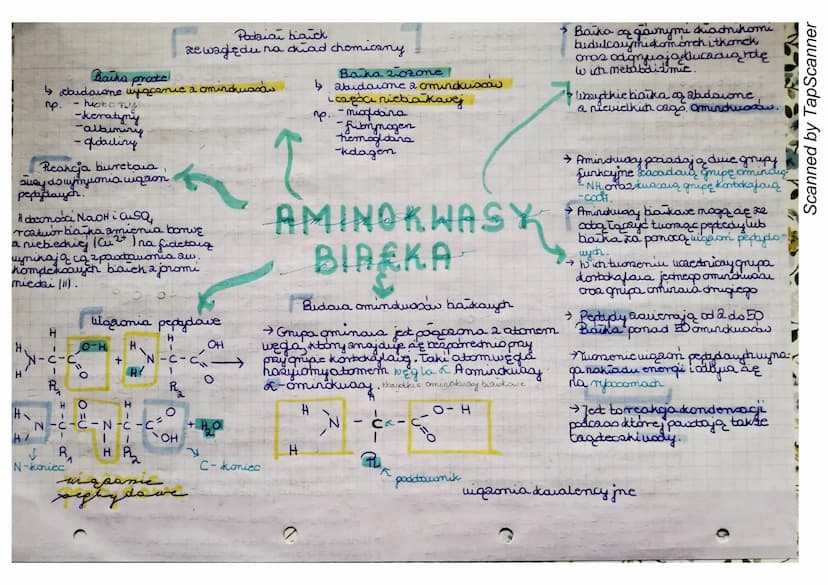 Podział białek
ze względu na skład chemiczny
Białka proste
↳ zbudowane wyłącznie z aminokwasów
np. - histony
- keratyny
- albuminy
- gliadiny
Białka złożone
↳ zbudowane z aminokwasów
i części niebiałkowej
np. - mioglobina
- fibrynogen
- hemoglobina
- kolagen
→ Białka są głównymi składnikami
budulcowymi komórek i tkanek
oraz odgrywają kluczową rolę
w ich metabolizmie.
→ Wszystkie białka są zbudowane
z niewielkich cząs. aminokwasów.
Reakcja biuretowa
służy do wykrywania wiązań
peptydowych.
W obecności NaOH i CuSO4
roztwór białka zmienia barwę
z niebieskiej (Cu2+) na fioletową
wynikającą z powstawania zw.
kompleksowych białek z jonami
miedzi (II).
AMINOKWASY
BIAŁKA
→ Aminokwasy posiadają dwie grupy
funkcyjne zasadową grupę aminową
-NH2 oraz kwasową grupę karboksylową
-COOH.
→ Aminokwasy białkowe mogą się ze
sobą łączyć tworząc peptydy lub
białka za pomocą wiązań peptydo-
wych.
→ W ich tworzeniu uczestniczy grupa
karboksylowa jednego aminokwasu
oraz grupa aminowa drugiego
→ Peptydy zawierają od 2 do 50
Białka ponad 50 aminokwasów
→ Tworzenie wiązań peptydowych wyma-
ga nakładu energii i odbywa się
na rybosomach
→ Jest to reakcja kondensacji
podczas której powstają także
cząsteczki wody.
Wiązania peptydowe
H
H
N
C
C
O
O-H
R1
+
H
H
N
C
C
OH
O
R2
H
H
N
C
C
O
N
H
C
C
O
OH
R1
R2
+ H2O
N-koniec
C-koniec
wiązanie
peptydowe
Budowa aminokwasów białkowych
→ Grupa aminowa jest połączona z atomem
węgla, który znajduje się bezpośrednio przy
przy grupie karboksylowej. Taki atom węgla
nazywamy atomem węgla α. A aminokwasy
α-aminokwasy. wszystkie aminokwasy białkowe
H
H
N
C
C
O-H
O
H
R
podstawnik
wiązania kowalencyjne
Scanned by TapScanner